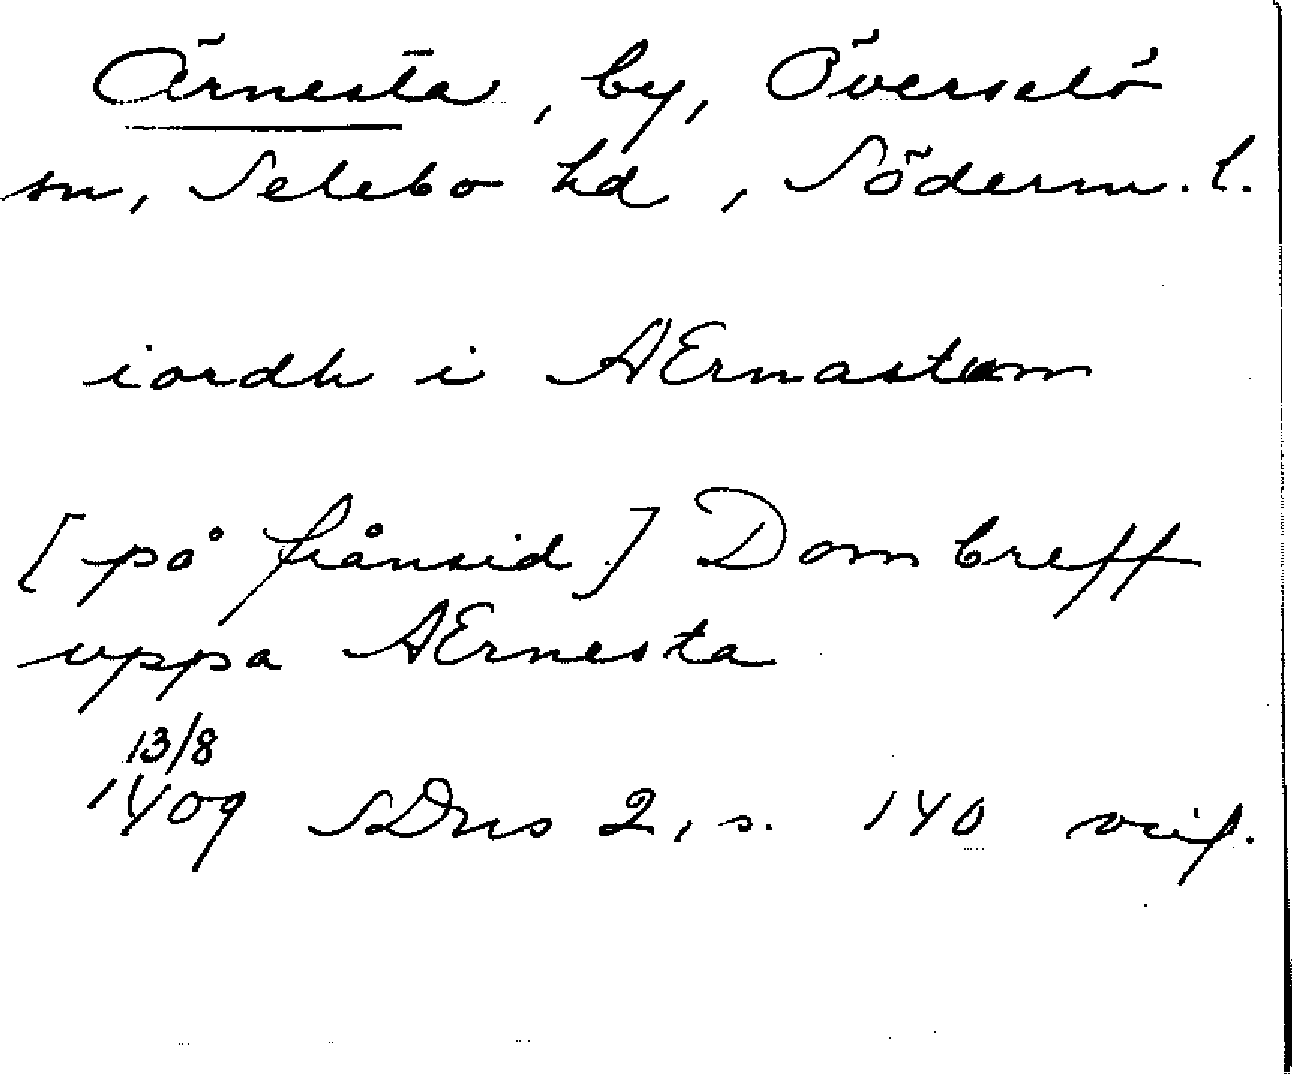 Ärnesta, by, Överselö
sn, Selebo hd, Söderm. l.
iordh i AErnastom
[på frånsid.] Dom breff
uppa AErnesta
13/8
1409 SDns 2, s. 140